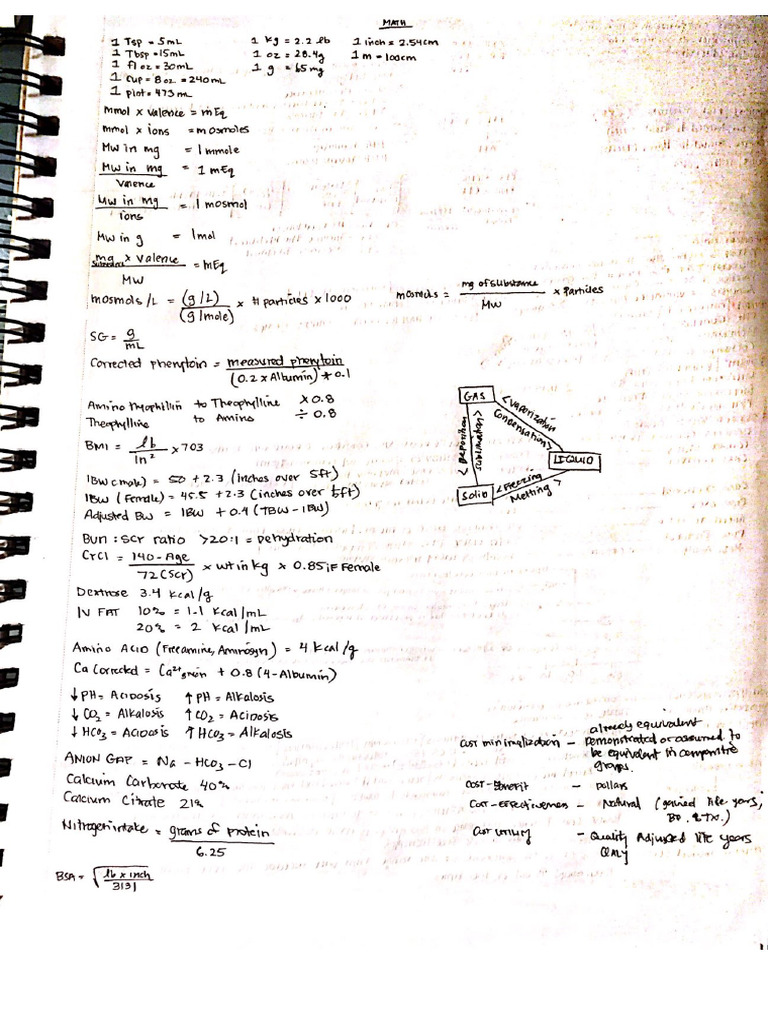 MATH
1 Tsp = 5mL
1 Tbsp = 15mL
1 fl oz = 30mL
1 cup = 8 oz = 240 mL
1 pint = 473 mL
1 kg = 2.2 lb
1 oz = 28.4g
1 g = 65 mg
1 inch = 2.54cm
1 m = 100cm
mmol x valence = mEq
mmol x ions = mosmoles
Mw in mg = 1 mmole
Mw in mg / valence = 1 mEq
Mw in mg / ions = 1 mosmol
Mw in g = 1 mol
mg substance x valence / MW = mEq
mosmols/L = (g/L) / (g/mole) x # particles x 1000
mosmols = mg of substance / MW x Particles
SG = g / mL
Corrected phenytoin = measured phenytoin / (0.2 x Albumin) + 0.1
Aminophyllin to Theophylline x 0.8
Theophylline to Amino ÷ 0.8
BMI = lb / in² x 703
IBW (male) = 50 + 2.3 (inches over 5ft)
IBW (Female) = 45.5 + 2.3 (inches over 5ft)
Adjusted BW = IBW + 0.4 (TBW - IBW)
GAS
< Vaporization
Condensation >
LIQUID
< Deposition
sublimation >
Solid
< Freezing
Melting >
Bun : Scr ratio > 20:1 = Dehydration
CrCl = 140 - Age / 72 (Scr) x wt in kg x 0.85 if Female
Dextrose 3.4 kcal/g
IV FAT 10% = 1.1 kcal/mL
20% = 2 kcal/mL
Amino Acid (Freamine, Aminosyn) = 4 kcal/g
Ca corrected = Ca²⁺ + 0.8 (4 - Albumin)
↓ PH = Acidosis ↑ PH = Alkalosis
↓ CO₂ = Alkalosis ↑ CO₂ = Acidosis
↓ HCO₃ = Acidosis ↑ HCO₃ = Alkalosis
ANION GAP = Na - HCO₃ - Cl
Calcium Carbonate 40%
Calcium Citrate 21%
Nitrogen intake = grams of protein / 6.25
BSA = √ lb x inch / 3131
already equivalent
Cost minimalization - Demonstrated or assumed to
be equivalent in comparitive
groups.
Cost-Benefit - Dollars
Cost-Effectiveness - Natural (gained life years,
Cost utility - Quality Adjusted life years